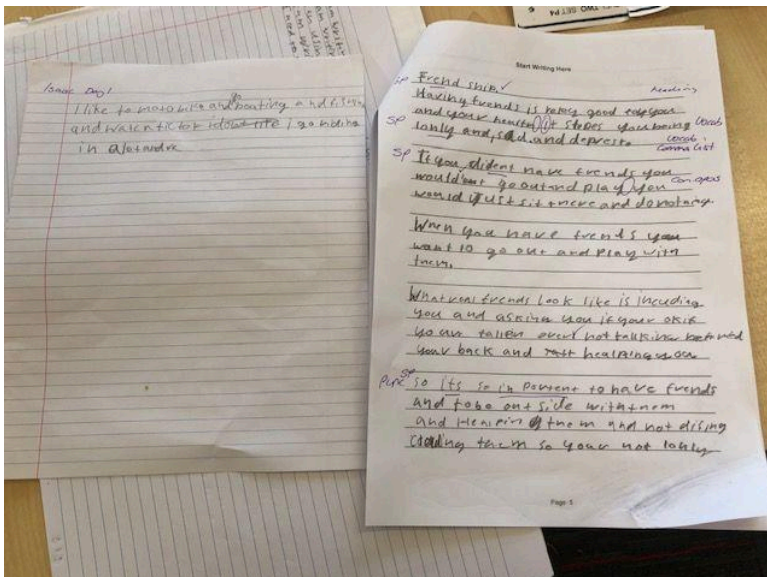 Isaac Day 1
I like to moto bike and go boating and fising
and
in
Start Writing Here
sp Frend ship. ✓ heading
Haxing frends is relley good for you
sp and your health it stopes you being vocab
lonly and, sad, and depresto. vocab
comma list
sp If you dident have frends you
would'ent go out and play you con. apos
would just sit there and do nothing.
When you have frends you
want to go out and play with
them.
What real frends look like is incuding
you and asking you if your ok if
you ave fallen over not talking behind
your back and healping you
Punc sp so its so in portent to have frends
and to be out side with them
and Healpin them and not dising
cluding them so your not lonly
Page 5